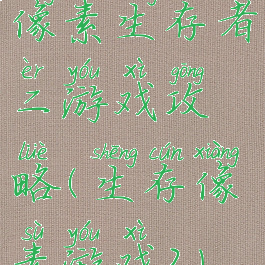 像素生存者
èr yóu xì gōng
二游戏攻
luè shēng cún xiàng
略(生存像
sù yóu xì
素游戏2)